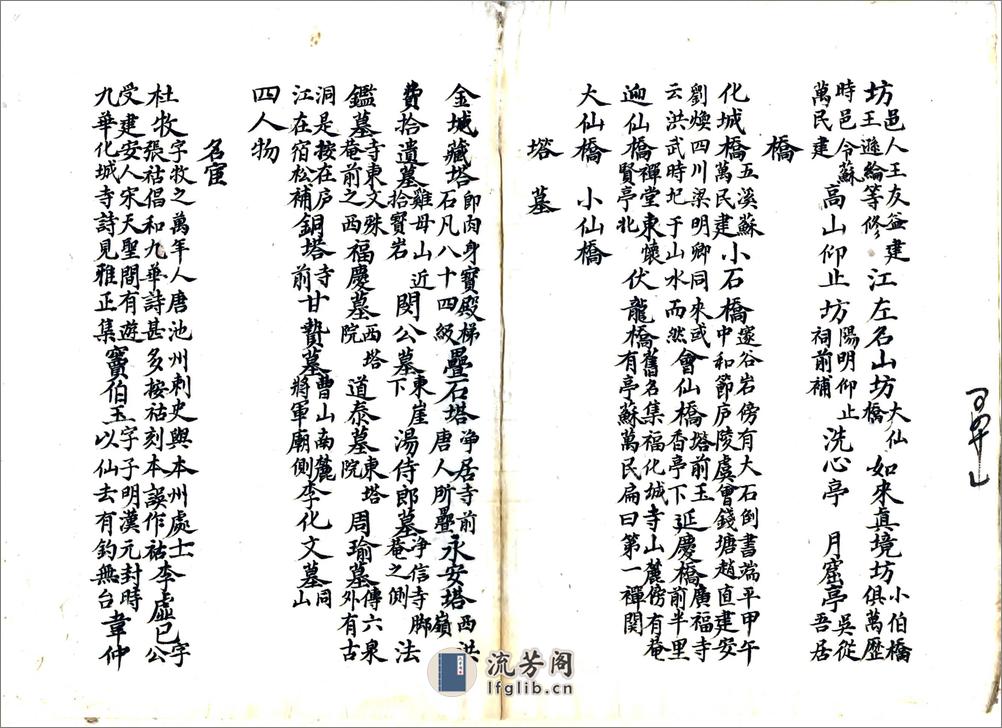 坊邑人王友益建王遜綸等修 江左名山坊大仙橋 如來真境坊小伯橋俱萬歷
時邑令蘇萬民建 高山仰止坊陽明仰止祠前補 洗心亭 月窟亭吳從吾居
橋
化城橋五溪蘇萬民建 小石橋邃谷岩傍有大石倒書端平甲午中和節庐陵虞會錢塘趙直建安
劉煥四川梁明卿同來或云洪武時圮于山水而然 會仙橋塔前玉香亭下 延慶橋廣福寺前半里
迎仙橋禪堂東懷賢亭北 伏龍橋舊名集福化城寺山麓傍有菴有亭蘇萬民扁曰第一禪関
大仙橋 小仙橋
塔墓
金城藏塔即肉身寶殿梯石凡八十四級 疊石塔浄居寺前唐人所疊 永安塔西洪嶺
費拾遺墓雞母山近拾寶岩 閔公墓東崖下 湯侍郎墓浄信寺脚菴之側 法
鑑墓寺東文殊菴前之西 福慶墓西塔院 道泰墓東塔院 周瑜墓傳六泉外有古
洞是按在庐江在宿松補 銅塔寺前 甘贄墓曹山南麓將軍廟側 李化文墓同山
四人物
名宦
杜牧字牧之萬年人唐池州刺史與本州處士張祜倡和九華詩甚多按祜刻本誤作祐 李虛已字公
受建安人宋天聖間有遊九華化城寺詩見雅正集 竇伯玉字子明漢元封時以仙去有釣無台 韋仲
流芳阁
lfglib.cn